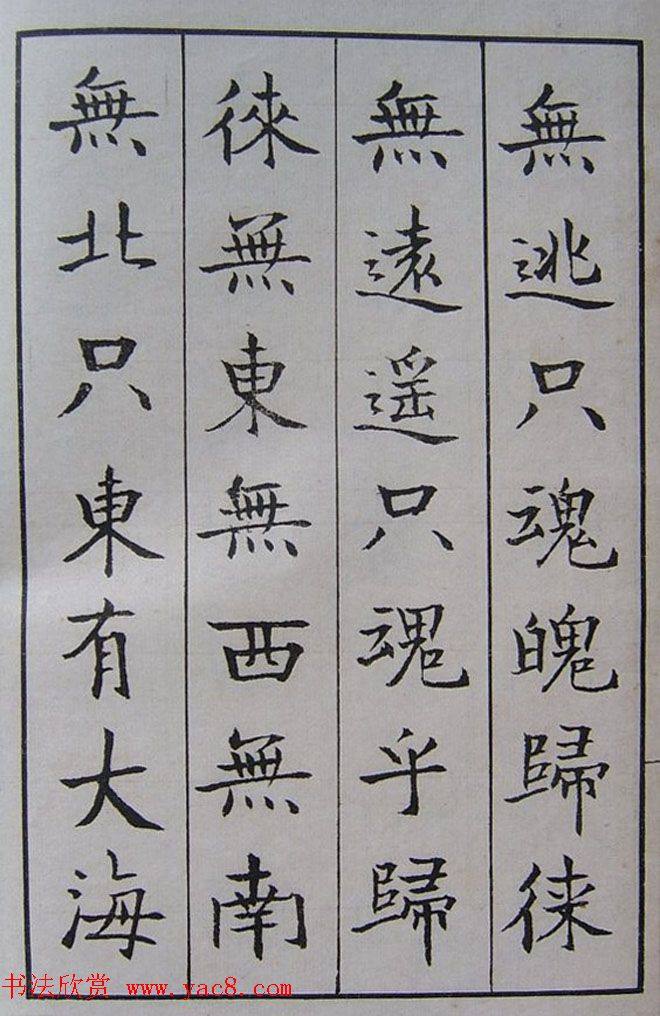 無逃只魂魄歸徠
無遠遥只魂乎歸
徠無東無西無南
無北只東有大海
书法欣赏 www.yac8.com